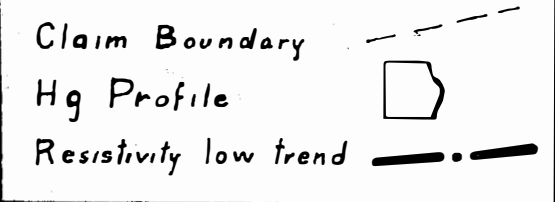 Claim Boundary
Hg Profile
Resistivity low trend